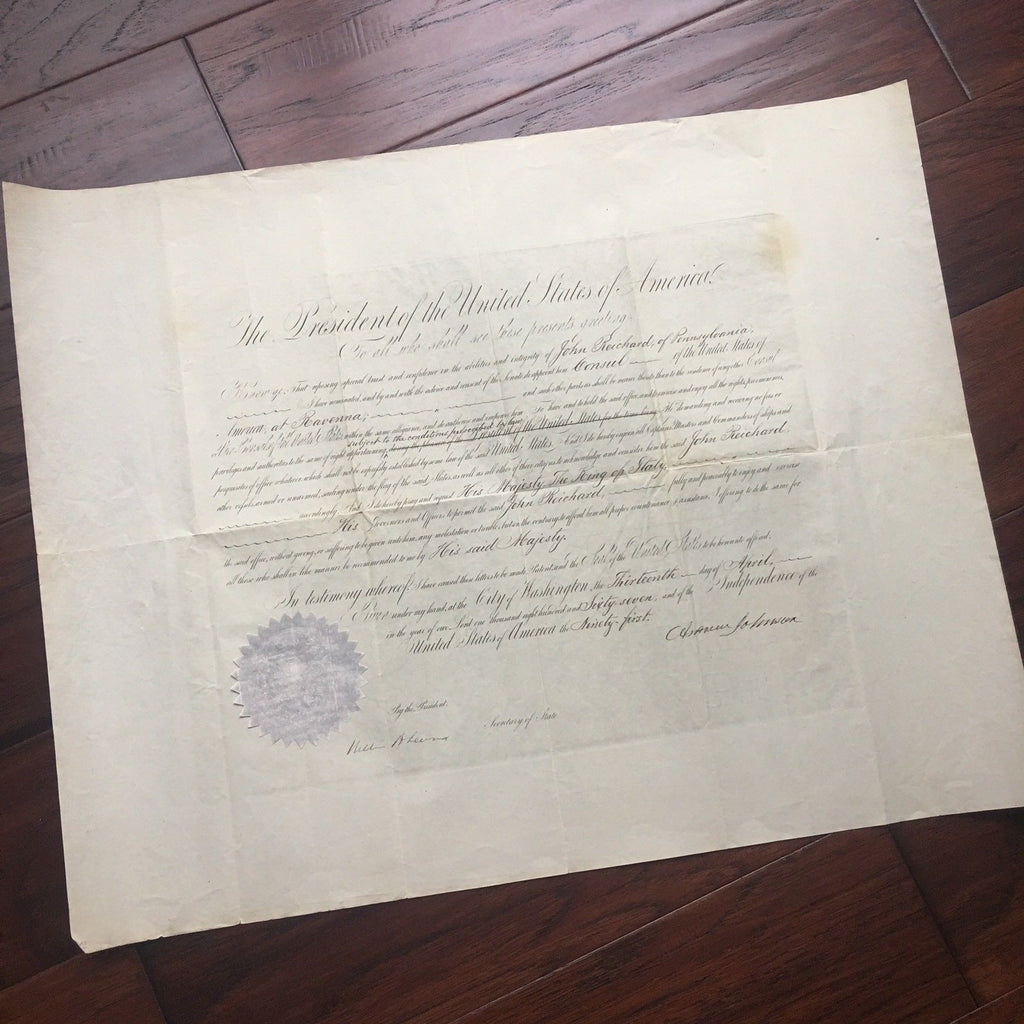 The President of the United States of America.
To all who shall see these presents greeting:
Know ye, That reposing special trust and confidence in the abilities and integrity of John Reichard, of Pennsylvania,
I have nominated, and by and with the advice and consent of the Senate do appoint him Consul of the United States of
America, at Ravenna, and such other parts as shall be nearer thereto than to the residence of any other Consul
within the same allegiance, and do authorize and empower him To have and to hold the said office, and to exercise and enjoy all the rights, preeminences,
subject to the conditions prescribed by law
privileges and authorities to the same of right appertaining, during the pleasure of the President of the United States for the time being; He demanding and receiving no fees or
perquisites of office whatever, which shall not be expressly established by some law of the said United States. And I do hereby enjoin all Captains Masters and Commanders of ships and
other vessels, armed or unarmed, sailing under the flag of the said States, as well as all other of their citizens, to acknowledge and consider him the said John Reichard,
accordingly. And I do hereby pray and request His Majesty, The King of Italy,
His Governors and Officers, to permit the said John Reichard, fully and peaceably to enjoy and exercise
the said office, without giving, or suffering to be given unto him, any molestation or trouble, but on the contrary to afford him all proper countenance & assistance; I offering to do the same for
all those who shall in like manner be recommended to me by His said Majesty.
In testimony whereof, I have caused these letters to be made Patent, and the Seal of the United States to be hereunto affixed.
Given under my hand, at the City of Washington, the Thirteenth day of April,
in the year of our Lord one thousand eight hundred and Sixty-seven, and of the Independence of the
United States of America the Ninety-first.
Andrew Johnson
By the President.
Secretary of State